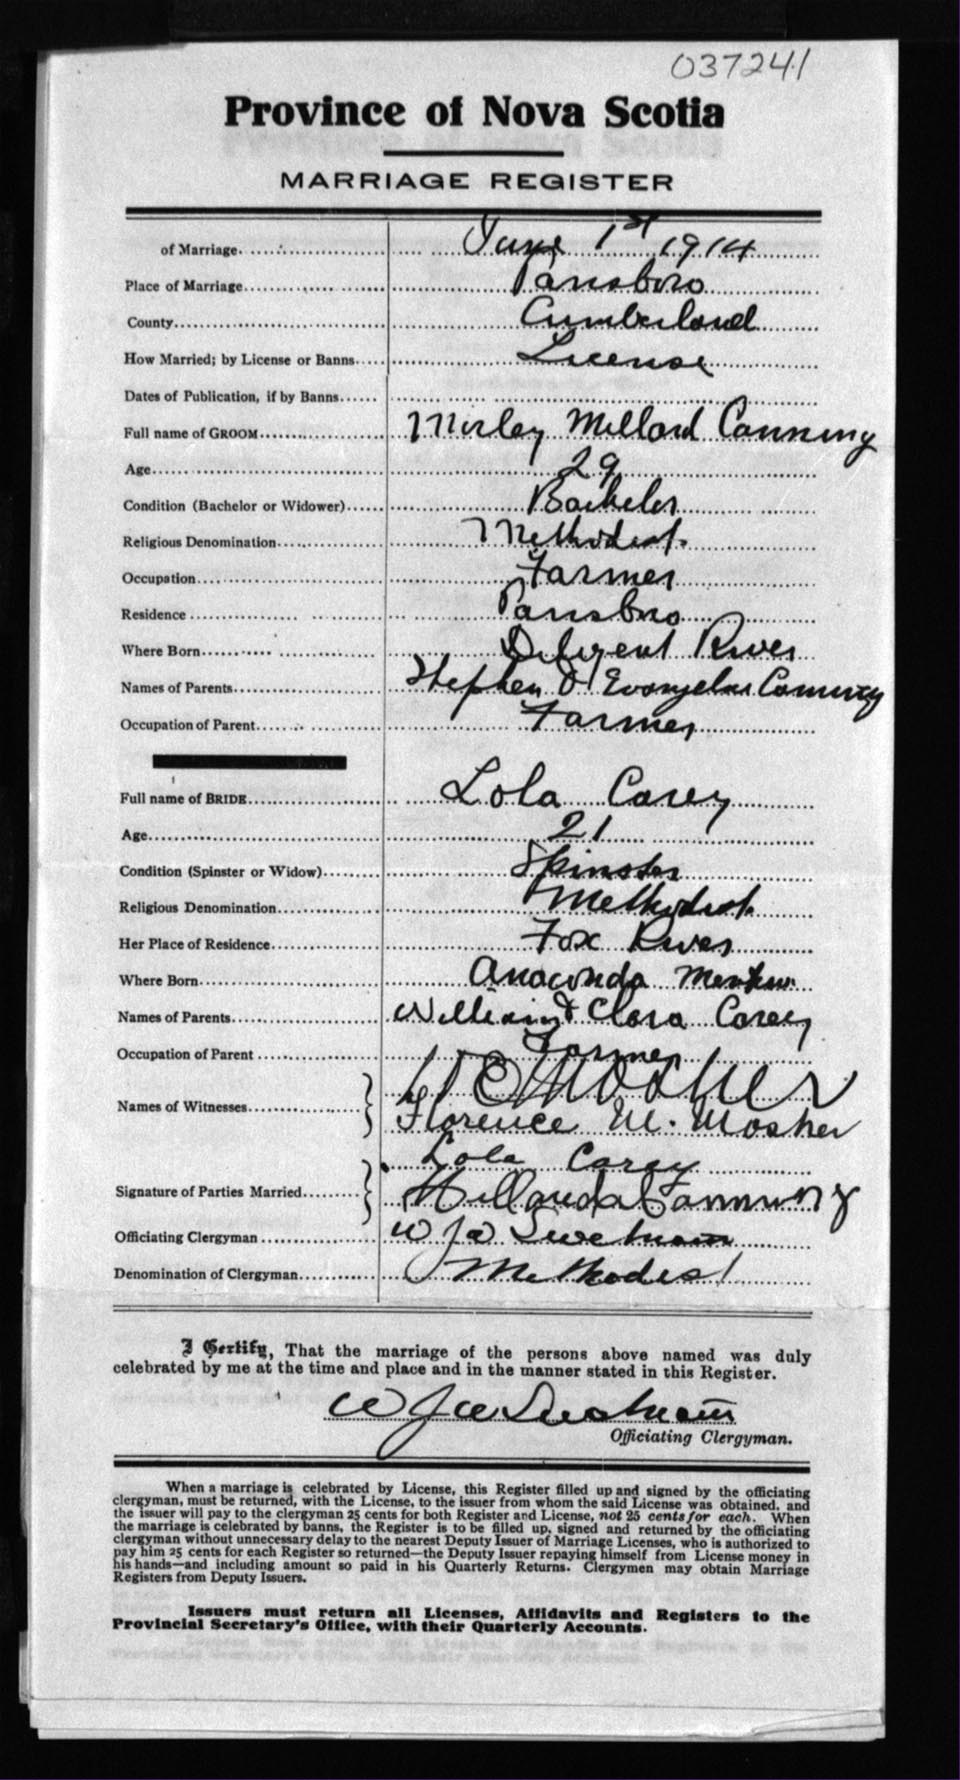 037241
Province of Nova Scotia
MARRIAGE REGISTER
of Marriage June 1st 1914
Place of Marriage Parrsboro
County Cumberland
How Married; by License or Banns License
Dates of Publication, if by Banns
Full name of GROOM Millard Canning
Age 29
Condition (Bachelor or Widower) Bachelor
Religious Denomination Methodist
Occupation Farmer
Residence Parrsboro
Where Born River
Names of Parents Stephen & Canning
Occupation of Parent Farmer
Full name of BRIDE Lola Carey
Age 21
Condition (Spinster or Widow) Spinster
Religious Denomination Methodist
Her Place of Residence Fox River
Where Born Anaconda
Names of Parents William & Clara Carey
Occupation of Parent Farmer
Names of Witnesses Mosher
Florence M. Mosher
Lola Carey
Signature of Parties Married Canning
Officiating Clergyman W J W Swetnam
Denomination of Clergyman Methodist
I Certify, That the marriage of the persons above named was duly
celebrated by me at the time and place and in the manner stated in this Register.
W J W Swetnam
Officiating Clergyman.
When a marriage is celebrated by License, this Register filled up and signed by the officiating
clergyman, must be returned, with the License, to the issuer from whom the said License was obtained, and
the issuer will pay to the clergyman 25 cents for both Register and License, not 25 cents for each. When
the marriage is celebrated by banns, the Register is to be filled up, signed and returned by the officiating
clergyman without unnecessary delay to the nearest Deputy Issuer of Marriage Licenses, who is authorized to
pay him 25 cents for each Register so returned—the Deputy Issuer repaying himself from License money in
his hands—and including amount so paid in his Quarterly Returns. Clergymen may obtain Marriage
Registers from Deputy Issuers.
Issuers must return all Licenses, Affidavits and Registers to the
Provincial Secretary's Office, with their Quarterly Accounts.